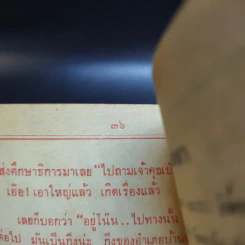 ๓๖
ส่งศึกษาธิการมาเลย "ไปถามเจ้าคุณ
เอ๊อ! เอาใหญ่แล้ว เกิดเรื่องแล้ว
เลยก็บอกว่า "อยู่โน้น..ไปทางนั้น
ต่อไป มันเป็นกึ่งนะ กึ่งของอำเภอบ้าน